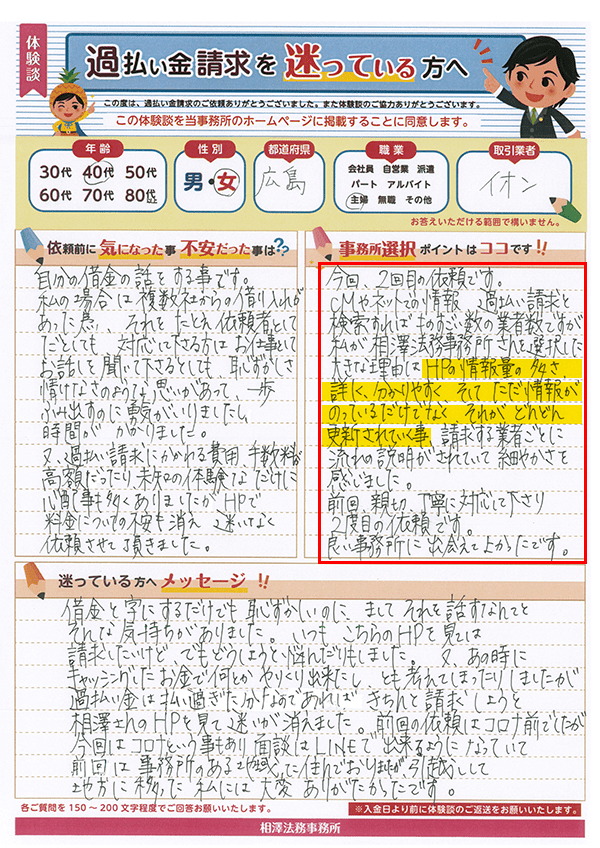 体験談
過払い金請求を迷っている方へ
この度は、過払い金請求のご依頼ありがとうございました。また体験談のご協力ありがとうございます。
この体験談を当事務所のホームページに掲載することに同意します。
年齢
30代 40代 50代
60代 70代 80代以上
性別
男・女
都道府県
広島
職業
会社員 自営業 派遣
パート アルバイト
主婦 無職 その他
取引業者
イオン
お答えいただける範囲で構いません。
依頼前に気になった事 不安だった事は??
自分の借金の話をする事です。
私の場合は複数社からの借り入れが
あった為、それをたとえ依頼者として
だとしても 対応して下さる方はお仕事として
お話しを聞いて下さるとしても、恥ずかしさ
情けなさのような思いがあって、一歩
ふみ出すのに勇気がいりましたし、
時間がかかりました。
又、過払い請求にかかわる費用 手数料が
高額だったり、未知の体験なだけに
心配事も多くありましたが、HPで
料金についての不安も消え 迷いなく
依頼させて頂きました。
事務所選択ポイントはココです!!
今回、2回目の依頼です。
CMやネットでの情報、過払い請求と
検索すればものすごい数の業者数ですが
私が相澤法務事務所さんを選択した
大きな理由はHPの情報量の多さ
詳しく、分かりやすく、そしてただ情報が
のっているだけでなく それが どんどん
更新されていく事、請求する業者ごとに
流れの説明がされていて細やかさを
感じました。
前回、親切、丁寧に対応して下さり
2度目の依頼です。
良い事務所に出会えてよかったです。
迷っている方へメッセージ!!
借金と字にするだけでも恥ずかしいのに、ましてそれを話すなんてと
そんな気持ちがありました。いつもこちらのHPを見ては
請求したいけど、でもどうしようと悩んだりもしました。又、あの時に
キャッシングしたお金で何とかやりくり出来たし、とも考えてしまったりしましたが
過払い金は払い過ぎた分なのであれば きちんと請求しようと
相澤さんのHPを見て迷いが消えました。前回の依頼はコロナ前でしたが
今回はコロナという事もあり 面談はLINEで出来るようになっていて
前回は事務所のある地域に住んでおりましたが、引越しして
地方に移った私には大変ありがたかったです。
各ご質問を150〜200文字程度でご回答お願いいたします。
※入金日より前に体験談のご返送をお願いいたします。
相澤法務事務所